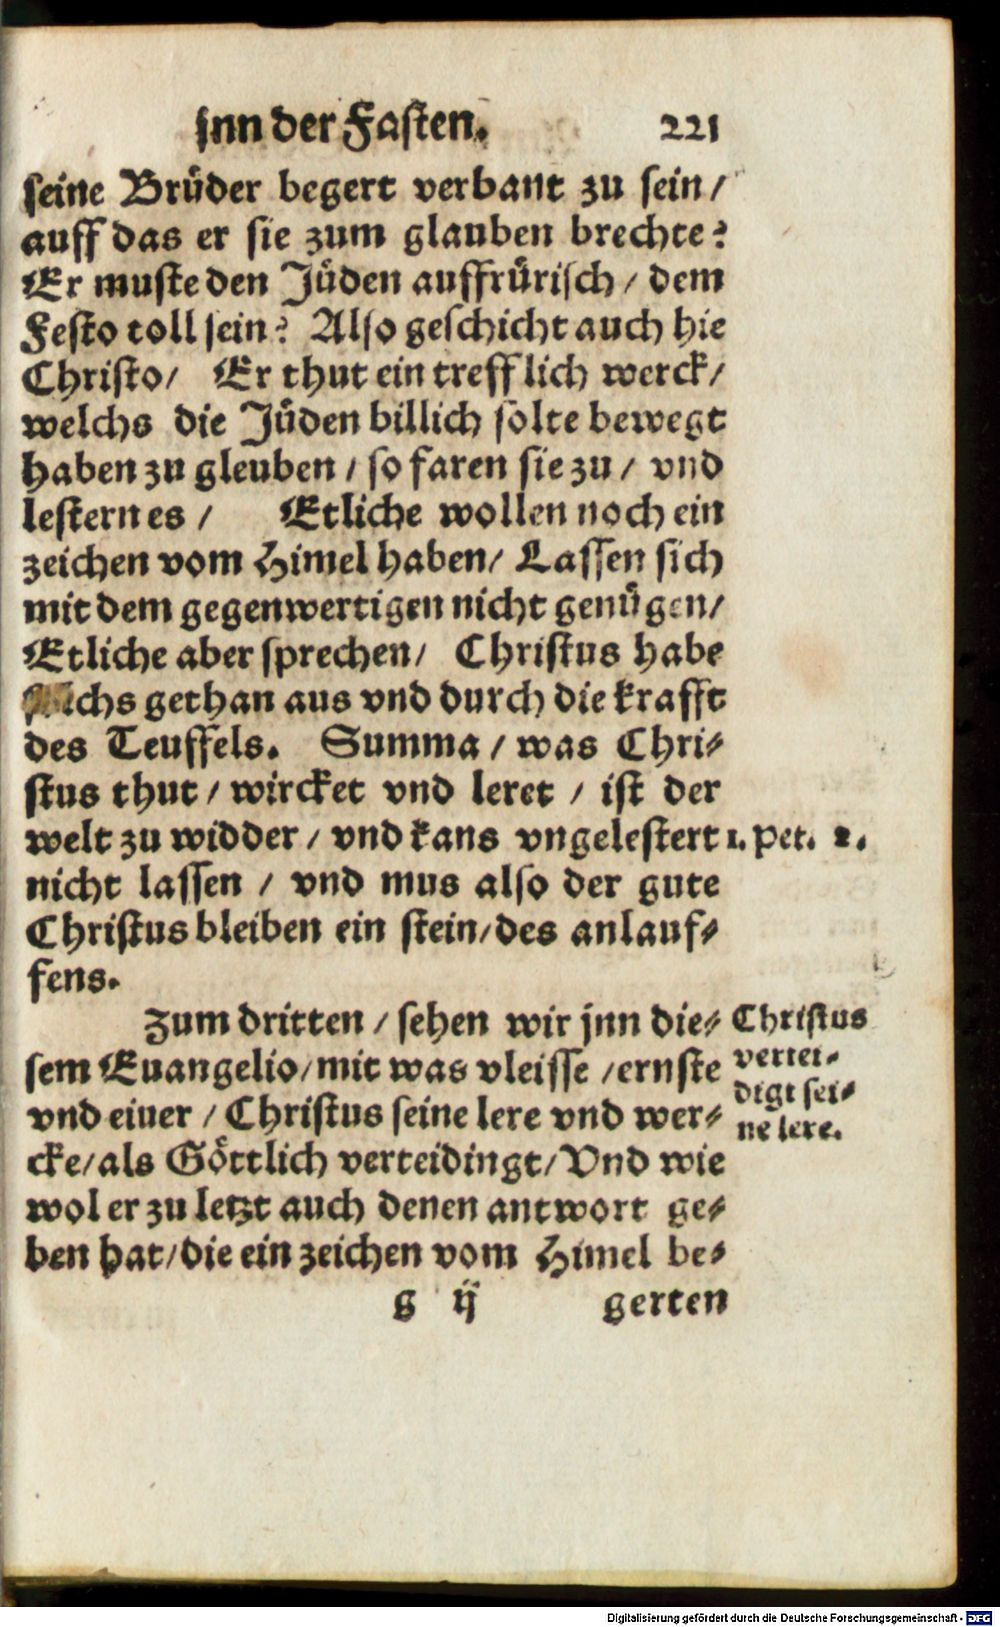 jnn der Fasten. 221
seine Brüder begert verbant zu sein/
auff das er sie zum glauben brechte?
Er muste den Jüden auffrürisch/ dem
Festo toll sein? Also geschicht auch hie
Christo/ Er thut ein trefflich werck/
welchs die Jüden billich solte bewegt
haben zu gleuben/ so faren sie zu/ vnd
lestern es/ Etliche wollen noch ein
zeichen vom Himel haben/ Lassen sich
mit dem gegenwertigen nicht genügen/
Etliche aber sprechen/ Christus habe
gethan aus vnd durch die krafft
des Teuffels. Summa/ was Chri-
stus thut/ wircket vnd leret/ ist der
welt zu widder/ vnd kans vngelestert
1. Pet. 2.
nicht lassen/ vnd mus also der gute
Christus bleiben ein stein/ des anlauf-
fens.
Zum dritten/ sehen wir jnn die-
sem Euangelio/ mit was vleisse/ ernste
vnd eiuer/ Christus seine lere vnd wer-
cke/ als Göttlich verteidingt/ Vnd wie
wol er zu letzt auch denen antwort ge-
ben hat/ die ein zeichen vom Himel be-
Christus
vertei-
digt sei-
ne lere.
g ij gerten
Digitalisierung gefördert durch die Deutsche Forschungsgemeinschaft - DFG